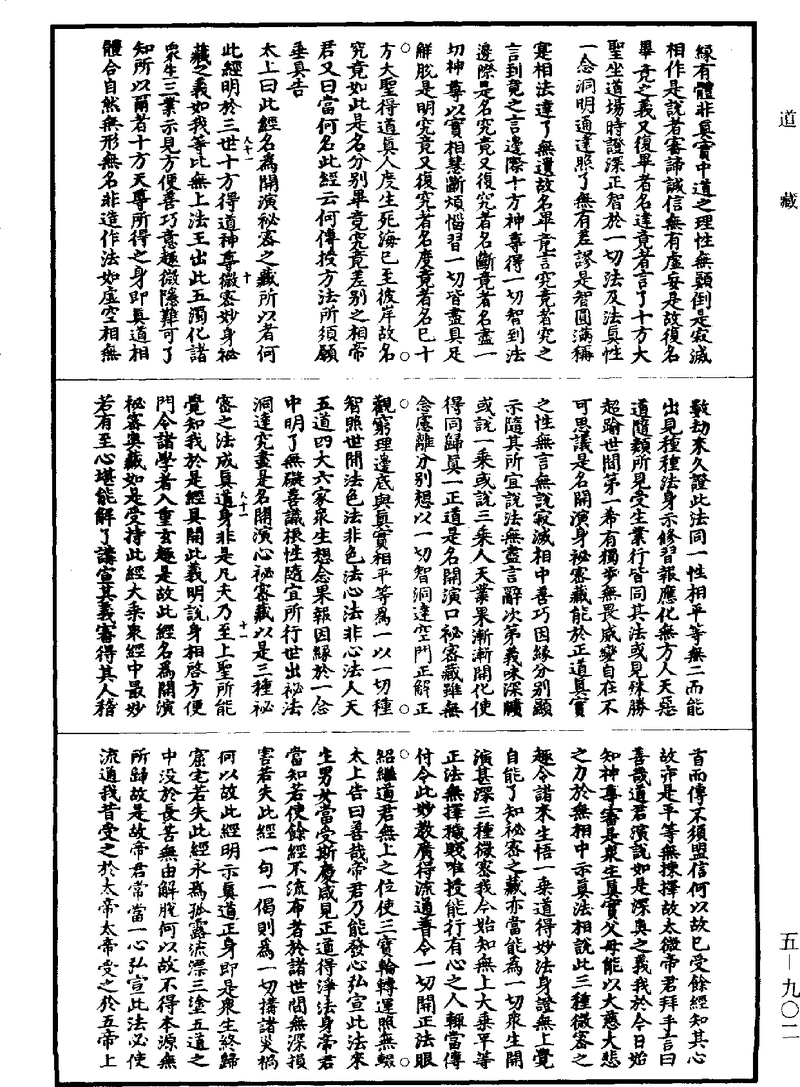 道藏
緣有體非真實中道之理性無顛倒是寂滅
相作是說者審諦誠信無有虛妄是故復名
畢竟之義又復畢者名達竟者言了十方大
聖坐道場時證深正智於一切法及法真性
一念洞明通達照了無有差謬是智圓滿稱
寔相法達了無遺故名畢竟言究竟者究之
言到竟之言邊際十方神尊得一切智到法
邊際是名究竟又復究者名斷竟者名盡一
切神尊以實相慧斷煩惱習一切皆盡具足
解脫是明究竟又復究者名度竟者名已十
方大聖得道真人度生死海已至彼岸故名
究竟如此是名分別畢竟究竟差別之相帝
君又曰當何名此經云何傳授方法所須願
垂具告
太上曰此經名為開演秘密之藏所以者何
此經明於三世十方得道神尊微密妙身祕
藏之義如我等比無上法王出此五濁化諸
衆生三業示見方便善巧意趣微隱難可了
知所以爾者十方天尊所得之身即真道相
體合自然無形無名非造作法如虛空相無
數劫來久證此法同一性相平等無二而能
出見種種法身示修習報應化無方人天惡
道隨類所見受生業行皆同其法或見殊勝
超踰世間第一希有獨步無畏威變自在不
可思議是名開演身祕密藏能於正道真實
之性無言無說寂滅相中善巧因緣分別顯
示隨其所宜說法無盡言辭次第義味深曠
或說一乘或說三乘人天業果漸漸開化使
得同歸真一正道是名開演口祕密藏雖無
念慮離分別想以一切智洞達空門正解正
觀窮理邊底與真實相平等為一以一切種
智照世間法色法非色法心法非心法人天
五道四大六家衆生想念果報因緣於一念
中明了無礙善識根性隨宜所行世出祕法
洞達究盡是名開演心祕密藏以是三種祕
密之法成真道身非是凡夫乃至上聖所能
覺知我於是經具開此義明說身相啓方便
門令諸學者入重玄趣是故此經名為開演
祕密奧藏如是受持此經大乘衆經中最妙
若有至心堪能解了講宣其義審得其人稽
首而傳不須盟信何以故已受餘經知其心
故亦是平等無揀擇故太微帝君拜手言曰
善哉道君演說如是深奧之義我於今日始
知神尊審是衆生真實父母能以大慈大悲
之力於無相中示真法相說此三種微密之
趣令諸來生悟一乘道得妙法身證無上覺
自能了知祕密之藏亦當能為一切衆生開
演甚深三種微密我今始知無上大乘平等
正法無擇穢賤唯授能行有心之人輒當傳
付令此妙教廣得流通普令一切開正法眼
紹繼道君無上之位使三寶輪轉運照無輟
太上告曰善哉帝君乃能發心弘宣此法來
生男女當受斯慶咸見正道得淨法身帝君
當知若使餘經不流布者於諸世間無深損
害若失此經一句一偈則為一切擣諸災禍
何以故此經明示真道正身即是衆生終歸
窟宅若失此經永為孤露流漂三塗五道之
中沒於長苦無由解脫何以故不得本源無
所歸故是故帝君常當一心弘宣此法必使
流通我昔受之於太帝太帝受之於五帝上
五－九〇二